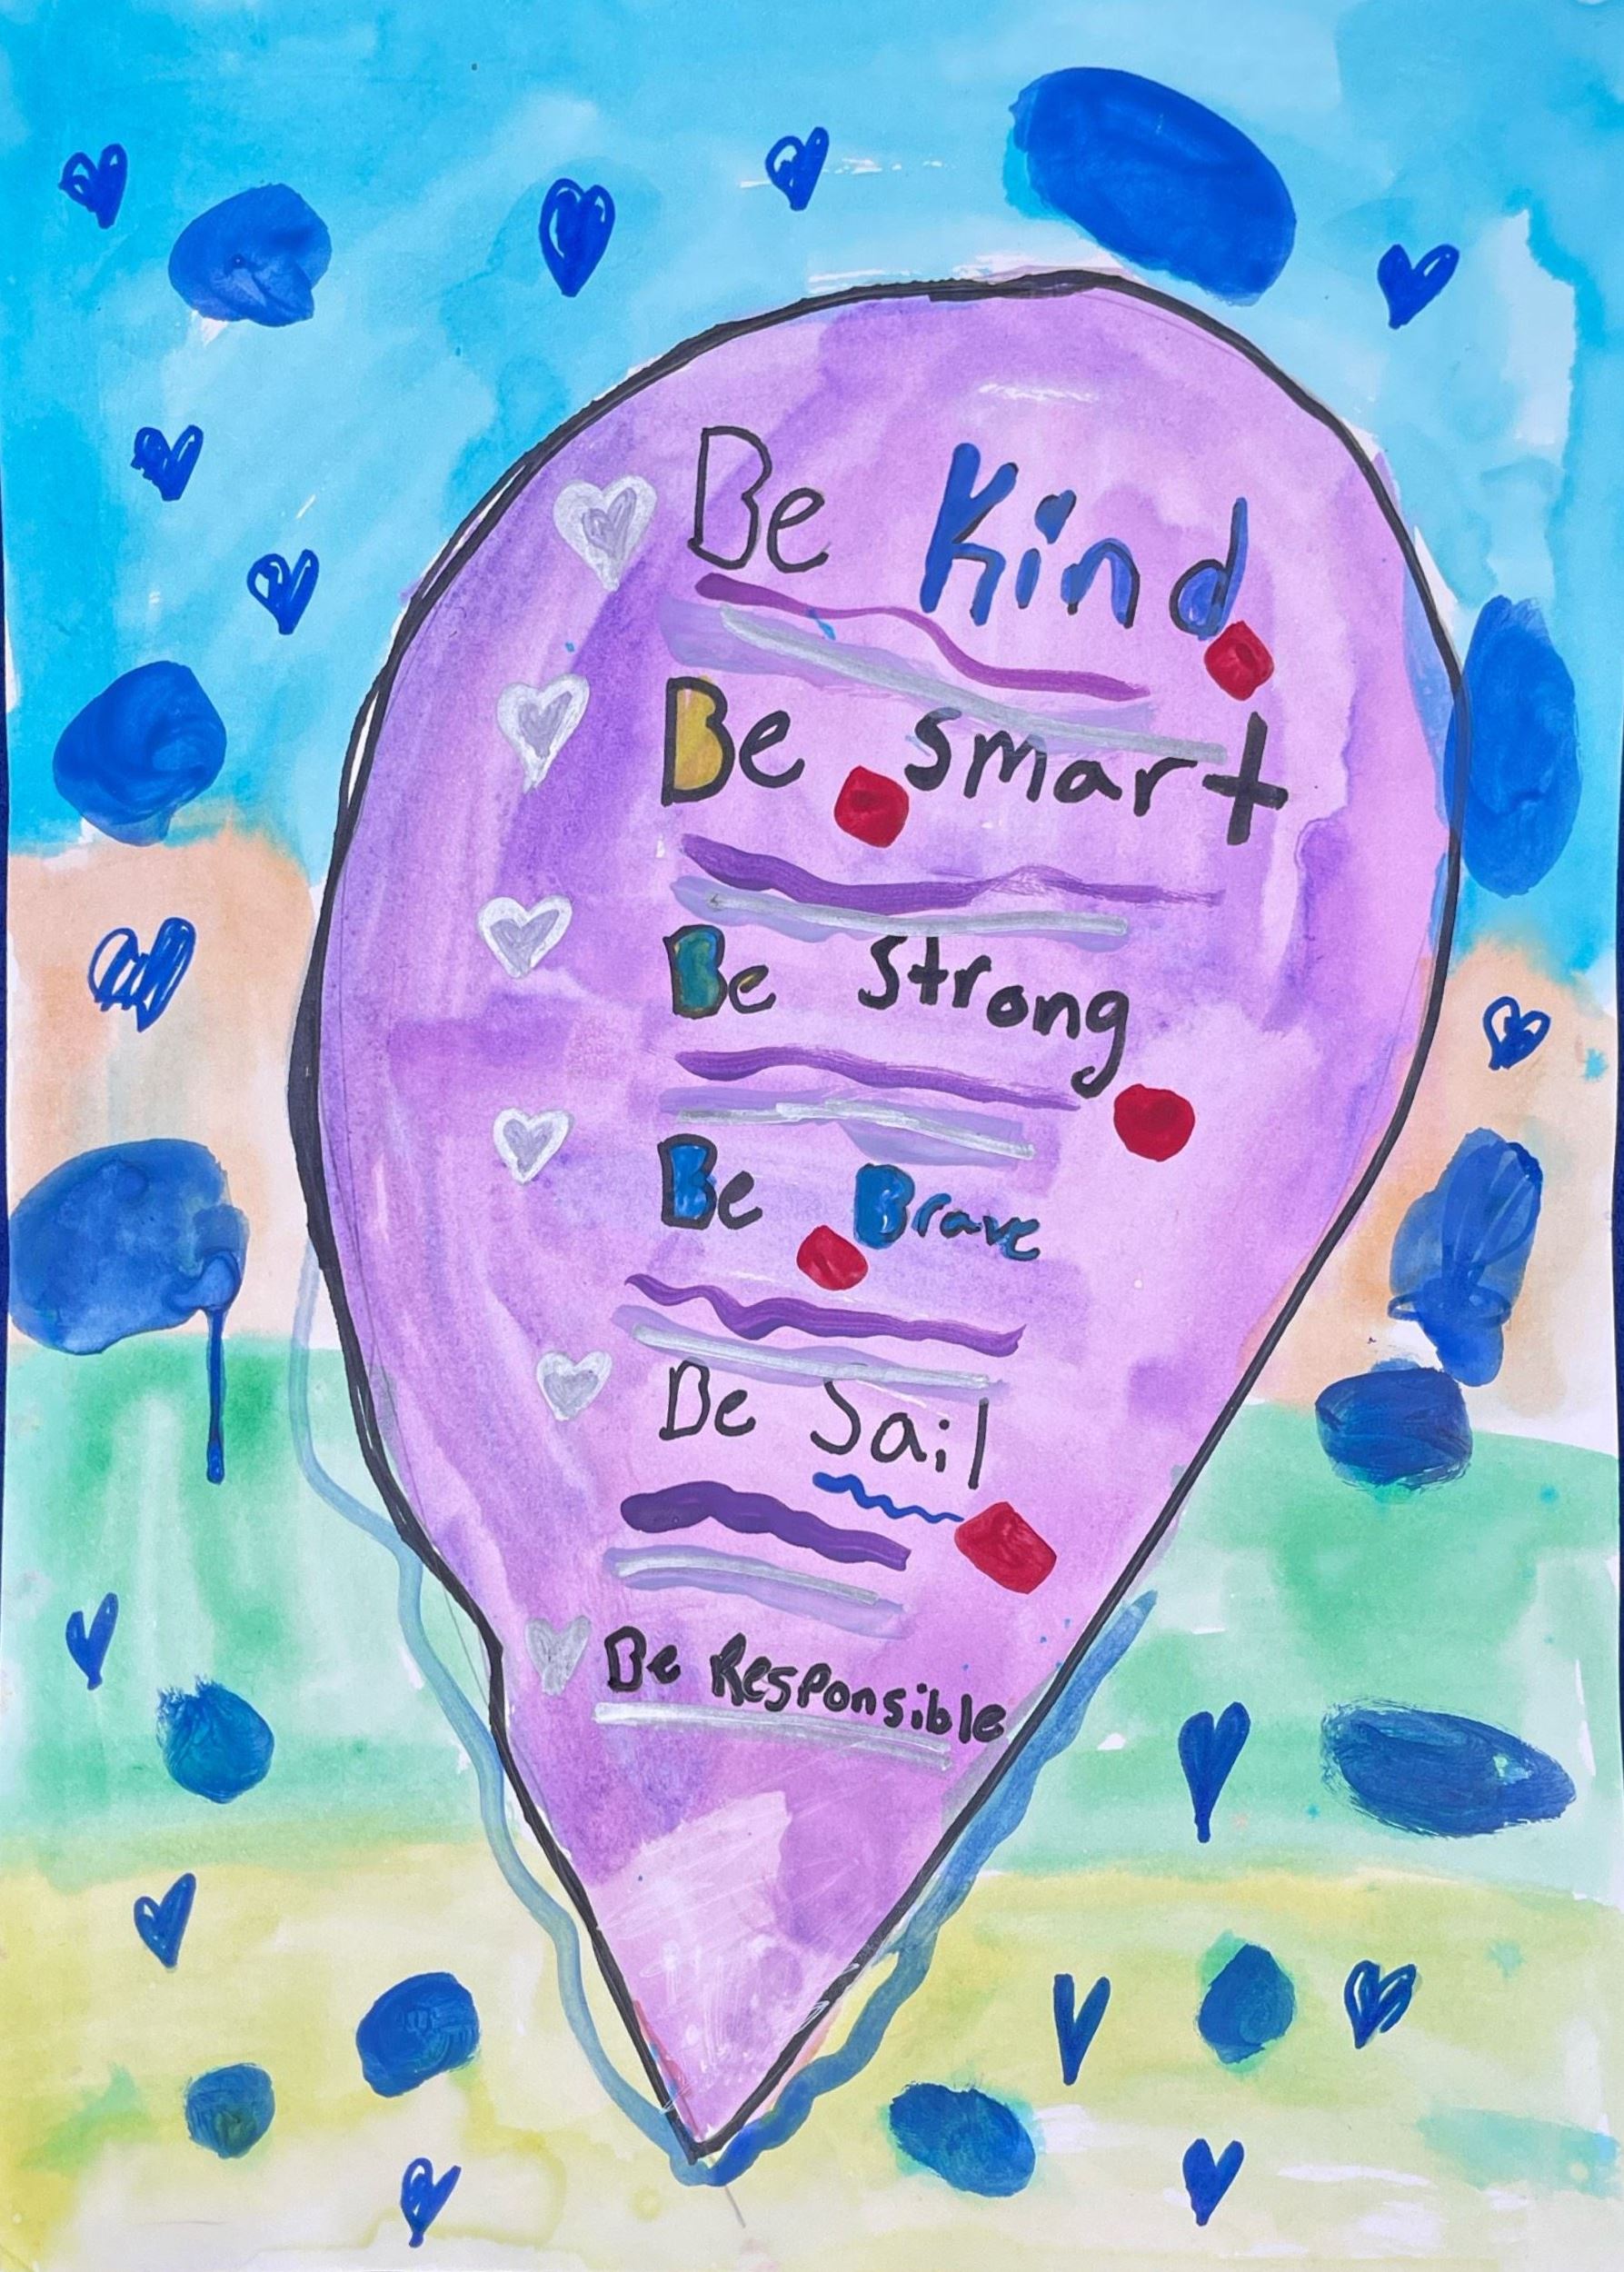 Be Kind
Be smart
Be Strong
Be Brave
Be Sail
Be Responsible